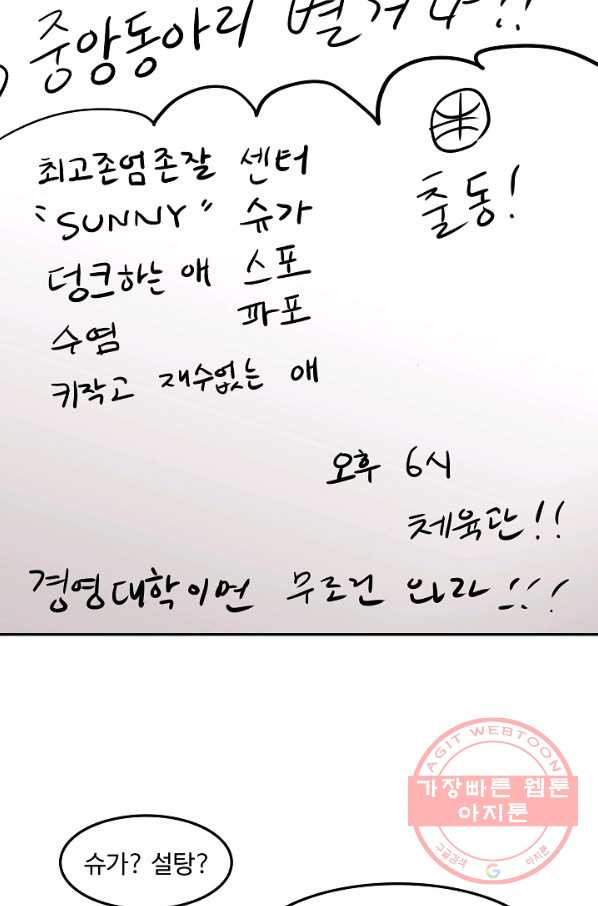 중앙동아리 별거냐!!
최고존엄존잘 센터
"SUNNY" 슈가
덩크하는 애 스포
수염 파포
키작고 재수없는 애
출동!
오후 6시
체육관!!
경영대학이면 무조건 와라!!!
AGIT WEBTOON
가장빠른 웹툰
아지툰
구글검색 G 아지툰
슈가? 설탕?